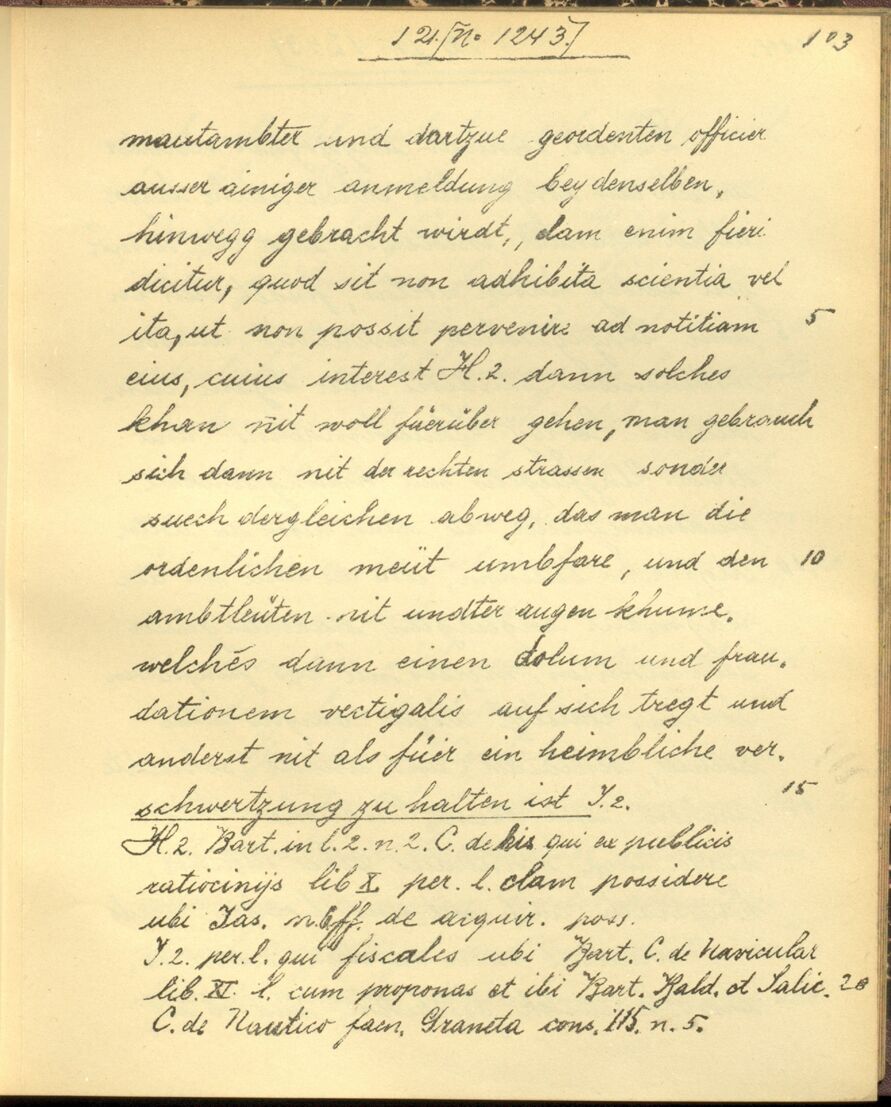 121. [No 1243.] 103
mautambter und dartzue geordenten officier
ausser ainiger anmeldung bey denselben,
hinwegg gebracht wirdt, clam enim fieri
dicitur, quod sit non adhibita scientia vel
ita, ut non possit pervenire ad notitiam 5
eius, cuius interest H.2. dann solches
khan nit woll füerüber gehen, man gebrauch
sich dann nit der rechten strassen sonder
suech dergleichen abweg, das man die
ordenlichen meüt umbfare, und den 10
ambtleüten nit undter augen khume.
welches dann einen dolum und frau-
dationem vectigalis auf sich tregt und
anderst nit als füer ein heimbliche ver-
schwertzung zu halten ist J.2. 15
H.2. Bart. in l. 2. n. 2. C. de his qui ex publicis
ratiocinijs lib X. per. l. clam possidere
ubi Jas. ff. de acquir. poss.
J.2. per. l. qui fiscales ubi Bart. C. de Navicular
lib. XI. l. cum proponas et ibi Bart. Bald. et Salic. 20
C. de Nautico faen. Graneta cons. 115. n. 5.